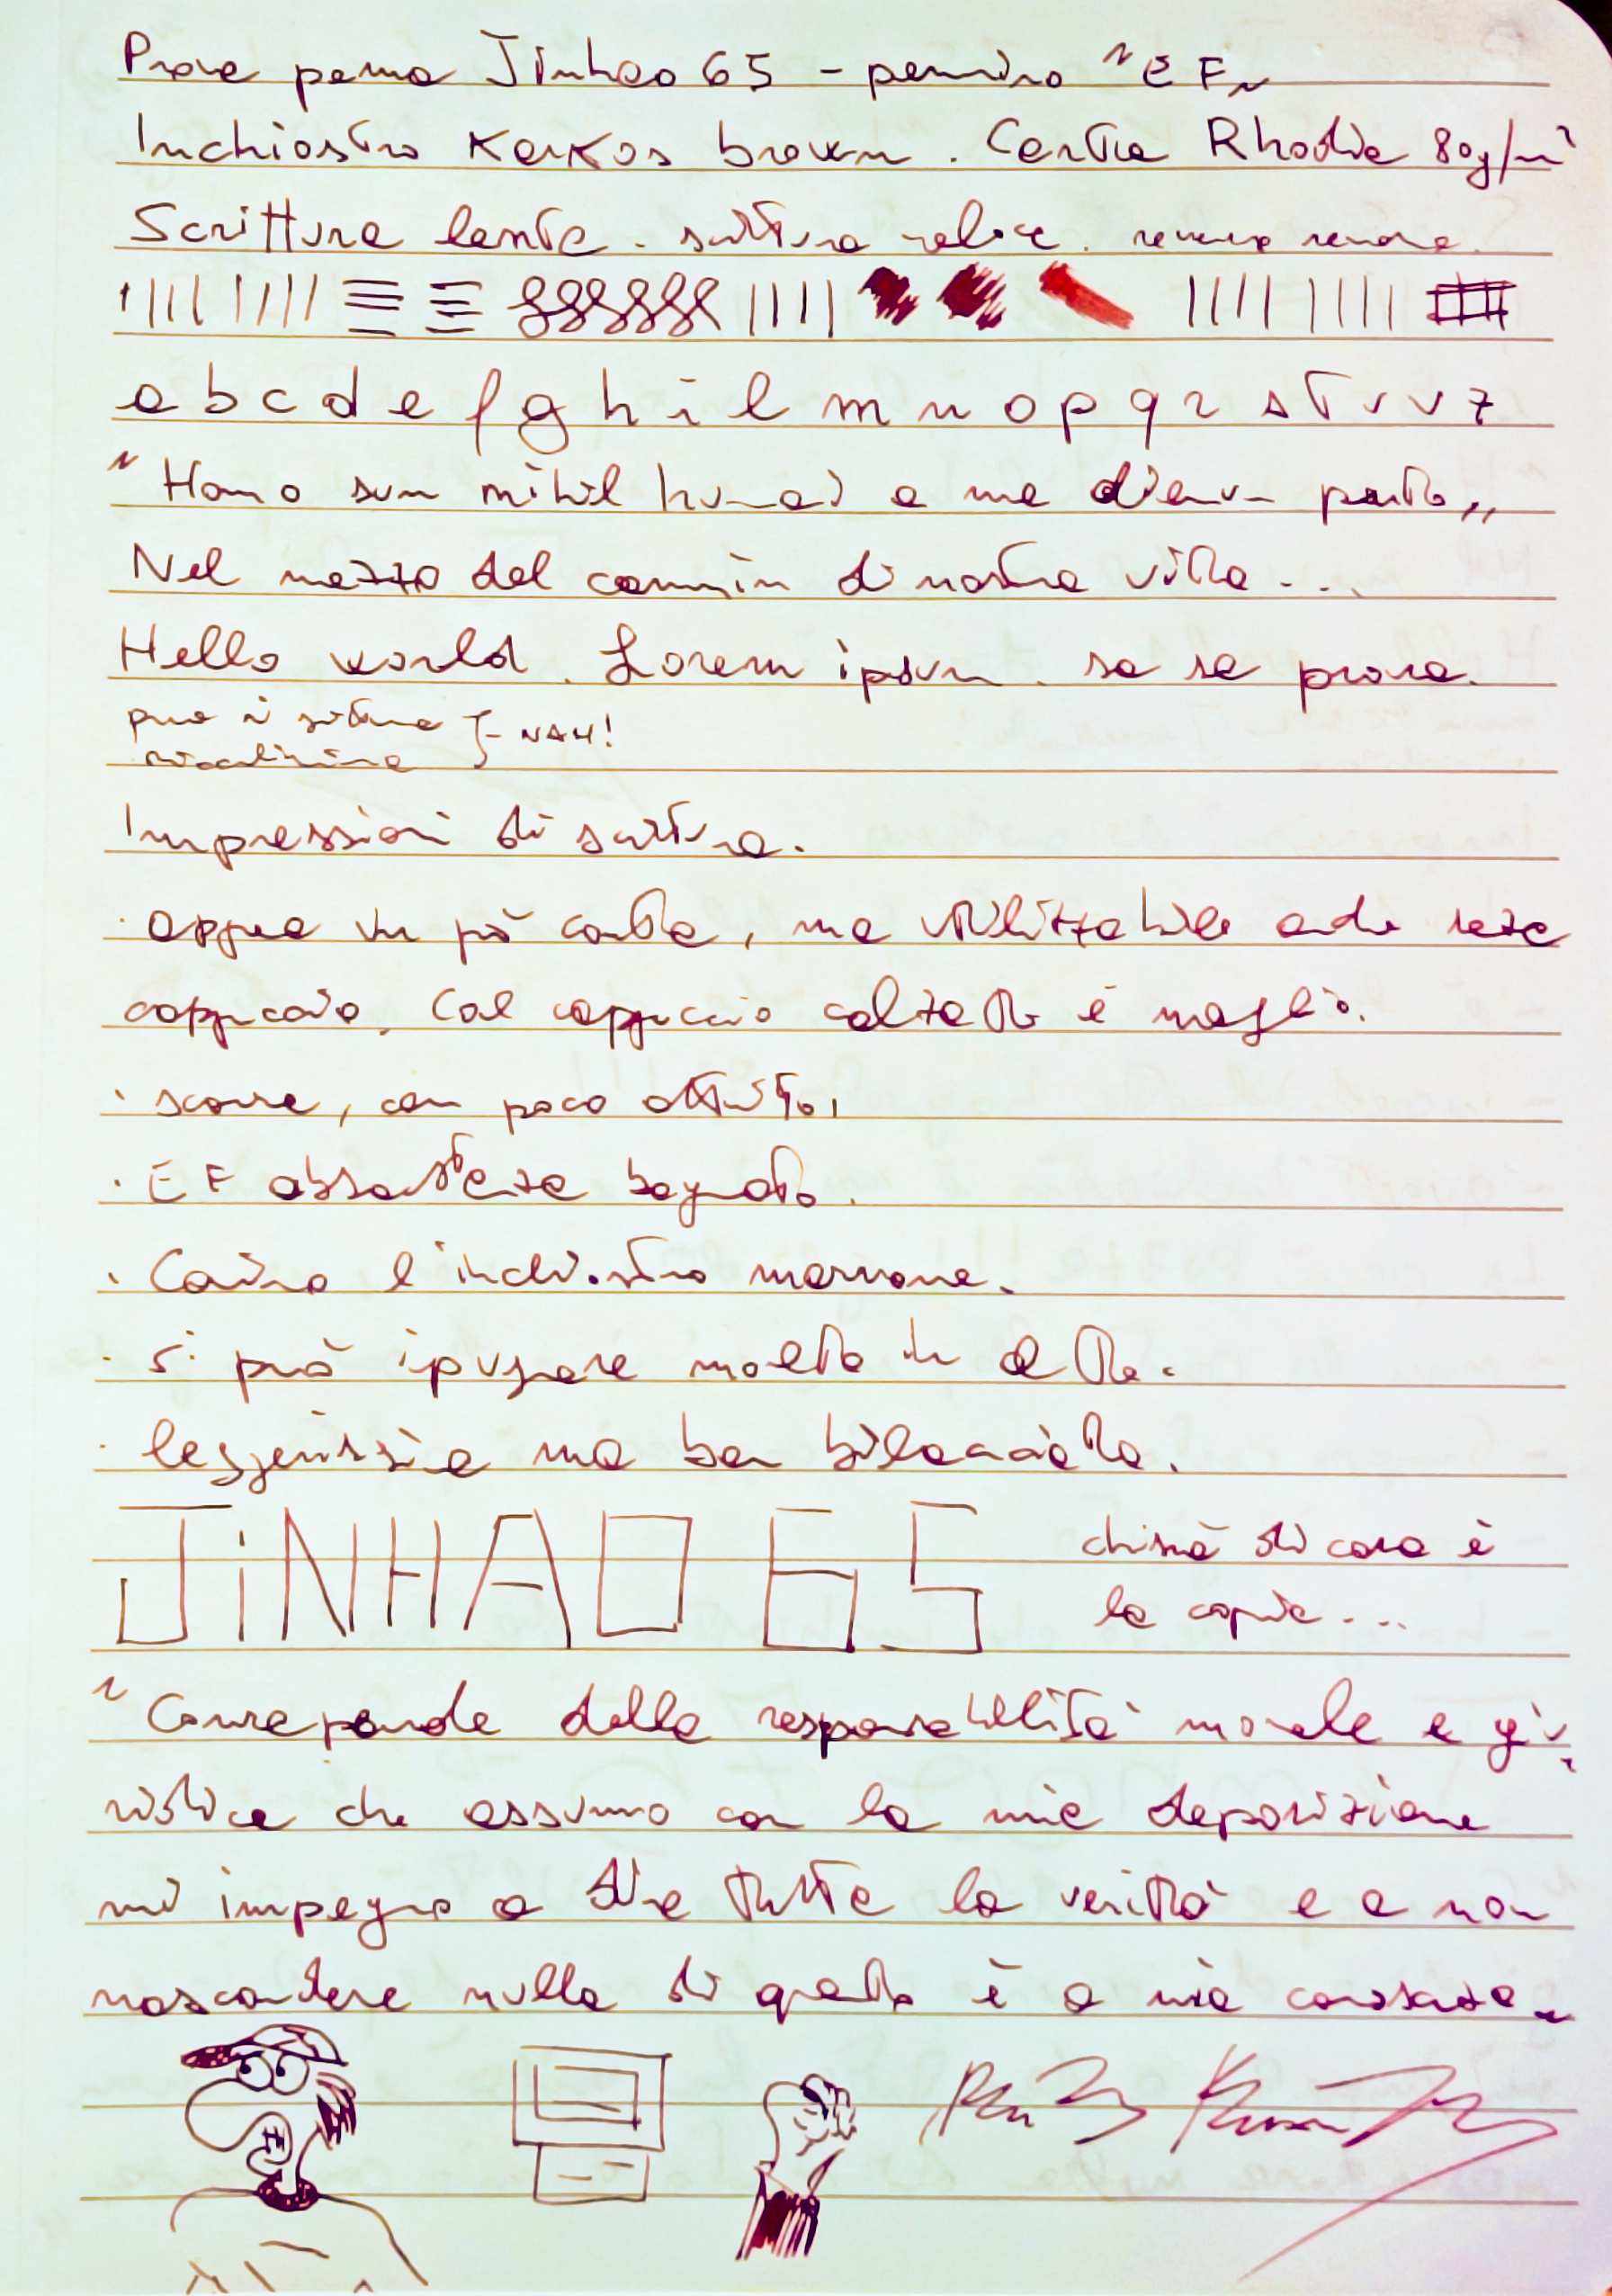 Prova penna Jinhao 65 - pennino "EF"
Inchiostro KarKos brown. Carta Rhodia 80g/m²
Scrittura lenta. scrittura veloce. reverse reverse.
a b c d e f g h i l m n o p q r s t u v z
"Homo sum nihil humani a me alienum puto"
Nel mezzo del cammin di nostra vita...
Hello world. Lorem ipsum. sa sa prova.
prova di scrittura } - NAH!
piccolissima
Impressioni di scrittura.
· appena un pò corta, ma utilizzabile anche senza
cappuccio. Col cappuccio calzato è meglio.
· scorre, con poco attrito,
· EF abbastanza bagnato.
· Carino l'inchiostro marrone.
· Si può impugnare molto in alto.
· leggerissima ma ben bilanciata.
JiNHAO 65
chissà di cosa è
la copia...
"Consapevole della responsabilità morale e giu-
ridica che assumo con la mia deposizione
mi impegno a dire tutta la verità e a non
nascondere nulla di quanto è a mia conoscenza"